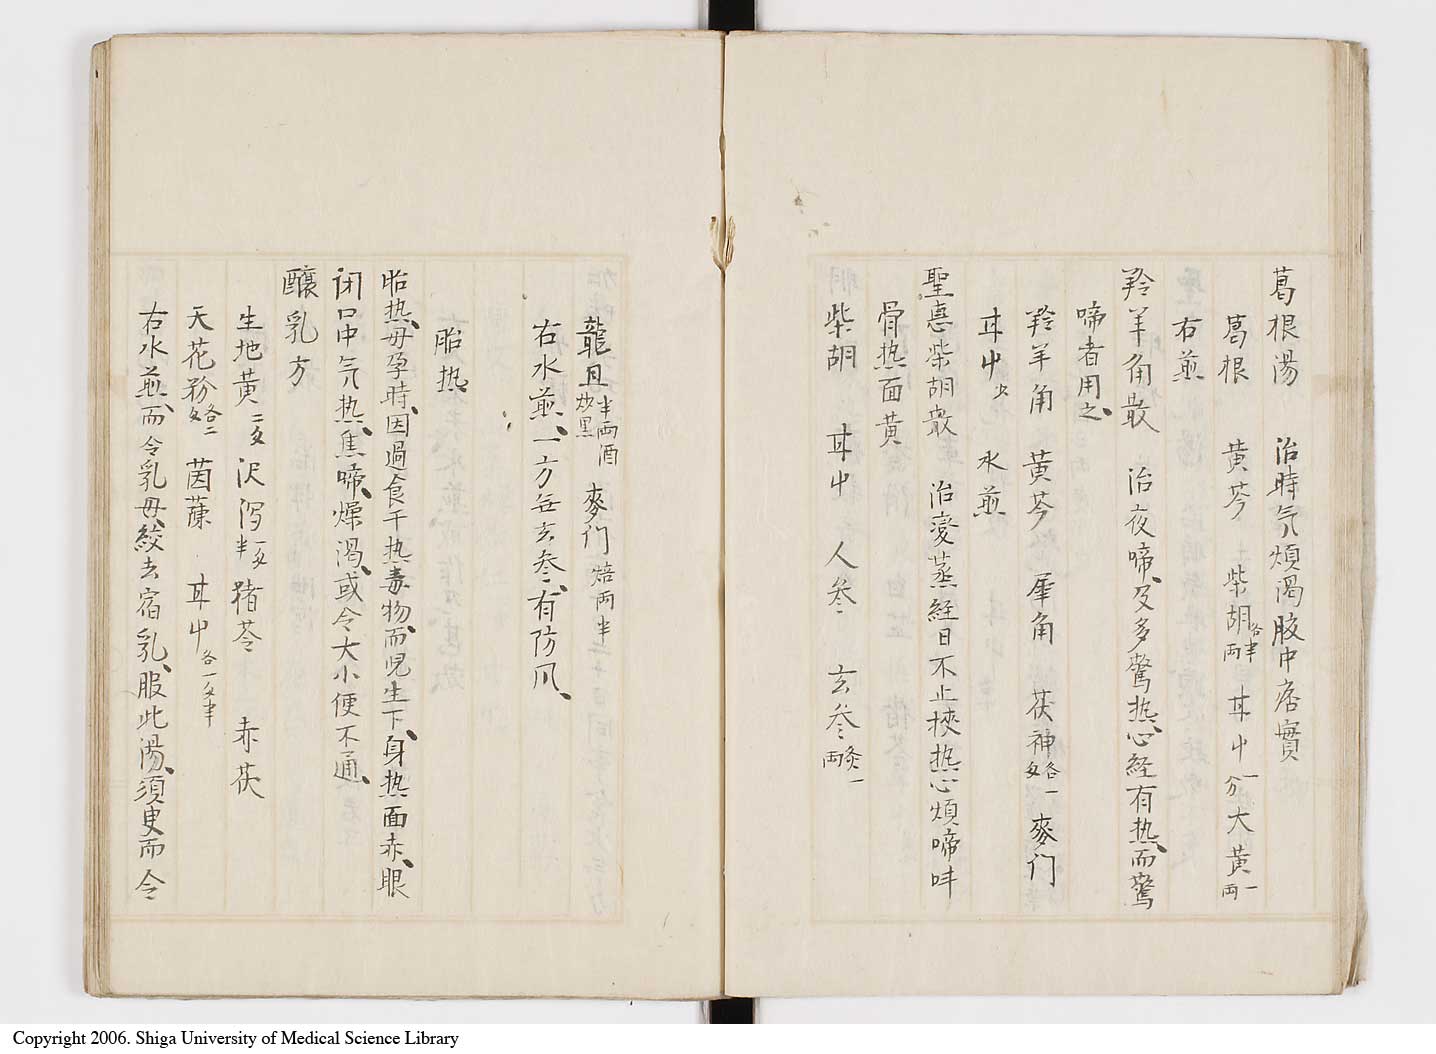 葛根湯　治時気煩渇腹中痞實
葛根　黄芩　柴胡各半両　甘屮一分　大黄一両
右煎
羚羊角散　治夜啼、及多驚热、心経有热、而驚
啼者用之、
羚羊角　黄芩　犀角　茯神各一匁　麥门
甘屮少　水煎
聖恵柴胡散　治変蒸経日不止挾热心煩啼呌
骨热面黄
柴胡　甘屮　人参　玄参各一両
龍且半両酒炒黒　麥门焙両半
右水煎、一方無玄参、有防风、
胎热
胎热、母孕時、因過食干热毒物、而児生下、身热面赤、眼
闭口中気热、焦啼、燥渇、或令大小便不通、
醸乳方
生地黄二匁　沢泻一匁半　猪苓　赤茯
天花粉各二匁　茵蔯　甘屮各一匁半
右水煎、而令乳母、絞去宿乳、服此湯、須臾而令
Copyright 2006. Shiga University of Medical Science Library